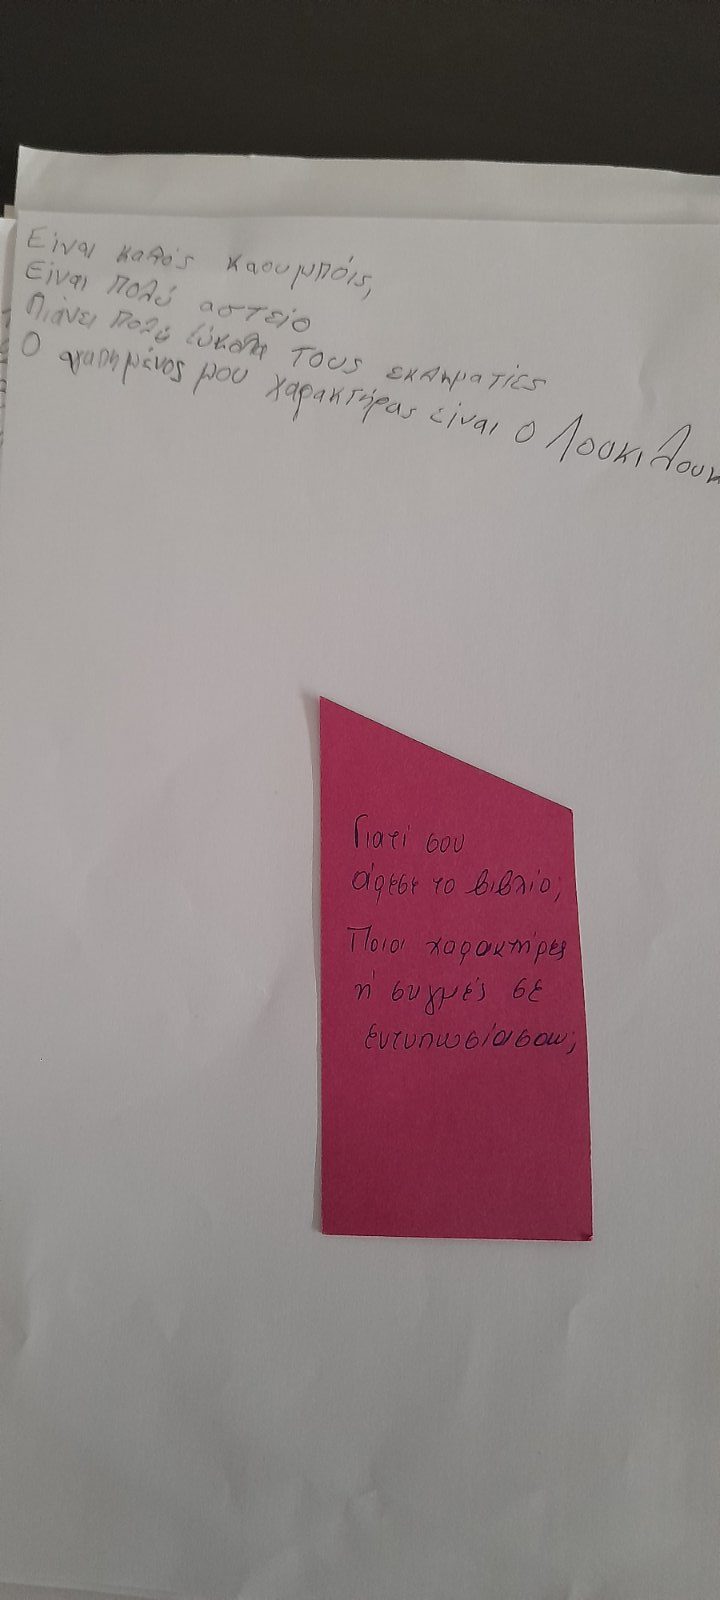 Είναι καλός καουμπόις,
Είναι πολύ αστείο
Πιάνει πολύ εύκολα τους εκληματίες
Ο αγαπημένος μου χαρακτήρας είναι ο Λουκι Λουκ
Γιατί σου
άρεσε το βιβλίο;
Ποιοι χαρακτήρες
ή στιγμές σε
εντυπωσίασαν;